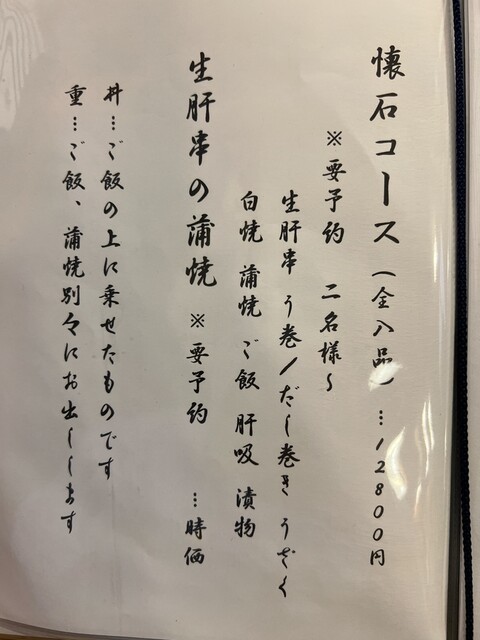 懐石コース(全八品)…12800円
※要予約 二名様~
生肝串 う巻/だし巻き うざく
白焼 蒲焼 ご飯 肝吸 漬物
生肝串の蒲焼 ※要予約 …時価
丼…ご飯の上に乗せたものです
重…ご飯、蒲焼別々にお出しします